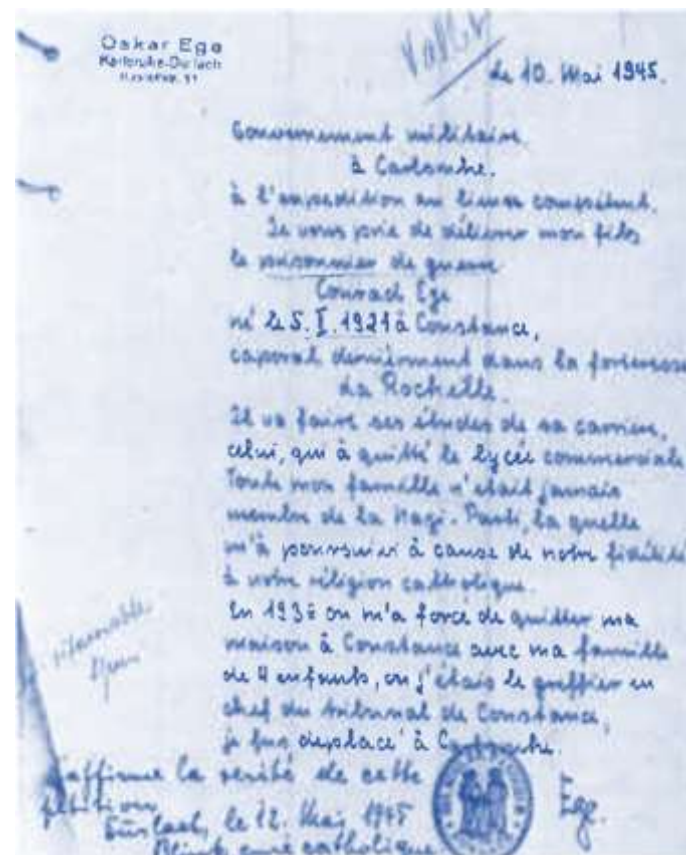 Oskar Ege
Karlsruhe-Durlach
le 10. Mai 1945.
Gouvernement militaire
à Carlsruhe.
à l'expedition au lieux compétent.
Je vous prie de délivrer mon fils
le prisonnier de guerre
Conrad Ege
né le 5. I. 1921 à Constance,
caporal dernièrment dans la forteresse
La Rochelle.
Il va faire ses études de sa carrière,
celui, qui à quitté le lycée commerciale
Toute mon famille n'était jamais
membre de la Nazi-Parti, la quelle
m'à poursuivi à cause de notre fidélité
à notre réligion catholique.
En 1938 on m'a forcé de quitter ma
maison à Constance avec ma famille
de 4 enfants, ou j'étais le greffier en
chef du tribunal de Constance,
je fus deplacé à Carlsruhe.
J'affirme la verité de cette
pétition
Durlach, le 12. Mai 1945
curé catholique
Ege.